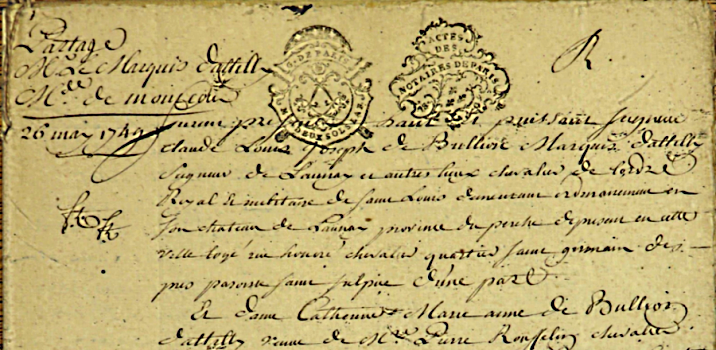 Partage
Mr. le Marquis d'attilly
Me. de
26 may 1749
G. DE PARIS
ACTES
DES
NOTAIRES DE PARIS
R
furent haut et puissant seigneur
Claude Louis Joseph de Bullion Marquis d'attilly
Seigneur de Launay et autres lieux chevalier de lordre
Royal et militaire de saint Louis demeurant ordinairement en
son chateau de Launay province du perche de present en cette
ville logé rue honoré chevalier quartier saint germain des
prez paroisse saint sulpice d'une part
Et dame Catherine Marie anne de Bullion
d'attilly veuve de Mre. Pierre Rousselin chevalier